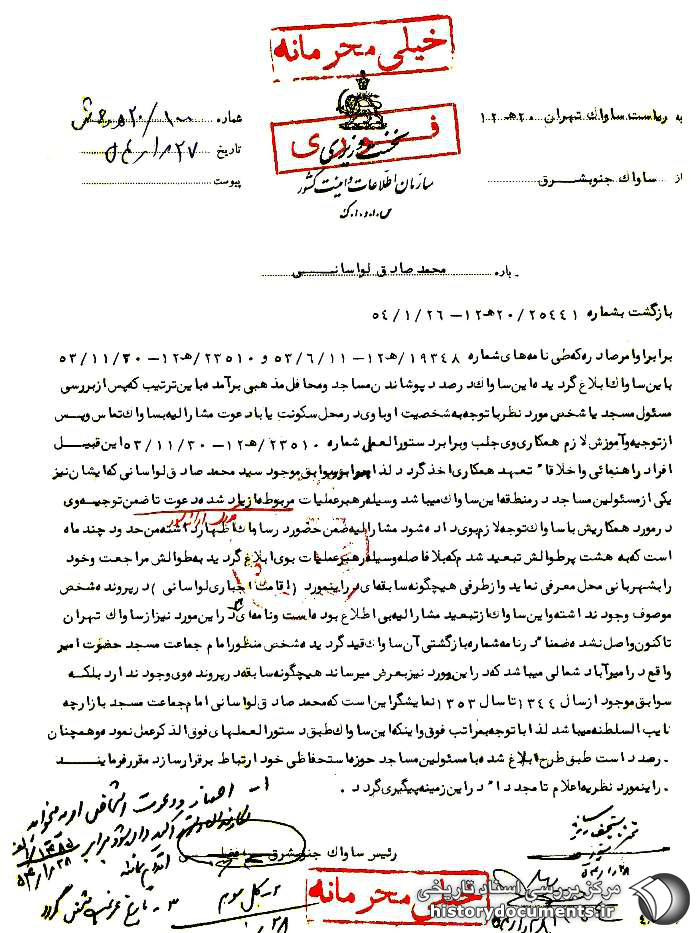 خیلی محرمانه
به ریاست ساواك تهران ۲۰ﻫ ۱۲
شماره
از ساواك جنوبشرق
تاریخ
پیوست
فوری
نخست وزیری
سازمان اطلاعات و امنیت کشور
س.ا.و.ا.ک
باره محمد صادق لواسانی
بازگشت بشماره ۲۵۴۴۱/۲۰ﻫ۱۲ – ۵۴/۱/۲۶
برابر اوامر صادره که طی نامه های شماره ۱۹۳۴۸/ﻫ۱۲ – ۵۳/۶/۱۱ و ۲۳۵۱۰/ﻫ۱۲ – ۵۳/۱۱/۳۰
باین ساواك ابلاغ گردیده این ساواك درصدد پوشاندن مساجد و محافل مذهبی برآمده باین ترتیب که پس از بررسی
مسئول مسجد یا شخص مورد نظر با توجه به شخصیت او با وی در محل سکونت یا با دعوت مشارالیه بساواك تماس و پس
از توجیه و آموزش لازم همکاری وی جلب و برابر دستورالعمل شماره ۲۳۵۱۰/ﻫ۱۲ – ۵۳/۱۱/۳۰ این قبیل
افراد راهنمائی و اخلاقاً تعهد همکاری اخذ گردد لذا برابر سوابق موجود سید محمد صادق لواسانی که ایشان نیز
یکی از مسئولین مساجد در منطقه این ساواك میباشد وسیله رهبر عملیات مربوطه از یاد شده دعوت تا ضمن توجیه وی
در مورد همکاریش با ساواك توجه لازم بوی داده شود مشارالیه ضمن حضور در ساواك اظهار داشته من حدود چند ماه
است که به هشت پر طوالش تبعید شدم که بلافاصله وسیله رهبر عملیات بوی ابلاغ گردید به طوالش مراجعت و خود
را بشهربانی محل معرفی نماید و از طرفی هیچگونه سابقه ای در اینمورد (اقامت اجباری لواسانی) در پرونده شخص
موصوف وجود نداشته و این ساواك از تبعید مشارالیه بی اطلاع بوده است و نامه ای در این مورد نیز از ساواك تهران
تاکنون واصل نشده ضمناً در نامه شماره بازگشتی آن ساواك قید گردیده شخص منظور امام جماعت مسجد حضرت امیر
واقع در امیرآباد شمالی میباشد که در این مورد نیز بعرض میرساند هیچگونه سابقه در پرونده وی وجود ندارد بلکه
سوابق موجود از سال ۱۳۴۴ تا سال ۱۳۵۳ نمایشگر این است که محمد صادق لواسانی امام جماعت مسجد بازارچه
نایب السلطنه میباشد لذا با توجه بمراتب فوق و اینکه این ساواك طبق دستورالعملهای فوق الذکر عمل نموده و همچنان
درصدد است طبق طرح ابلاغ شده با مسئولین مساجد حوزه مستحفاظی خود ارتباط برقرار سازد مقرر فرمایند
در اینمورد نظریه اعلام تا مجدداً در این زمینه پیگیری گردد .
رئیس ساواك جنوبشرق
خیلی محرمانه
مرکز بررسی اسناد تاریخی
historydocuments.ir